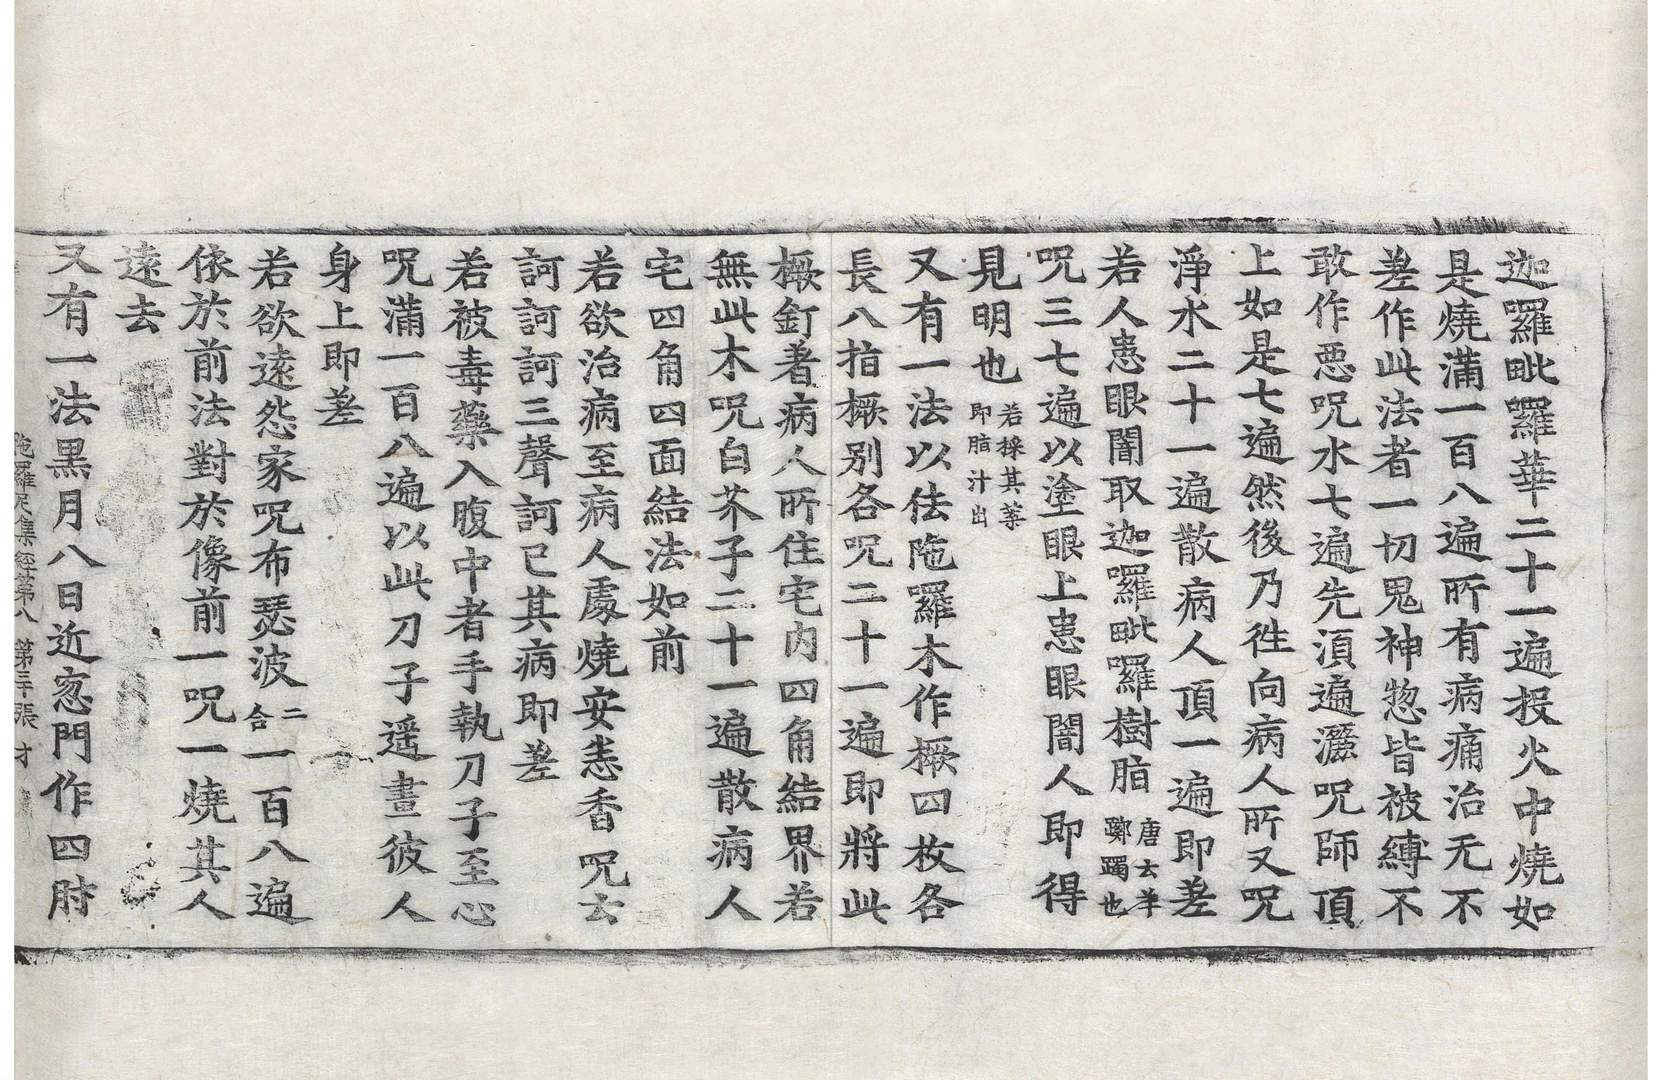 迦囉毗囉華二十一遍投火中燒如
是燒滿一百八遍所有病痛治无不
差作此法者一切鬼神惣皆被縛不
敢作惡呪水七遍先湏遍灑呪師頂
上如是七遍然後乃徃向病人所又呪
淨水二十一遍散病人頂一遍即差
若人患眼闇取迦囉毗囉樹脂唐云羊躑躅也
呪三七遍以塗眼上患眼闇人即得
見明也若採其葉即脂汁出
又有一法以佉陁羅木作橛四枚各
長八指橛別各呪二十一遍即將此
橛釘著病人所住宅内四角結界若
無此木呪白芥子二十一遍散病人
宅四角四面結法如前
若欲治病至病人處燒安悉香呪云
訶訶訶三聲訶已其病即差
若被毒藥入腹中者手執刀子至心
呪滿一百八遍以此刀子遥畫彼人
身上即差
若欲遠怨家呪布瑟波二合一百八遍
依於前法對於像前一呪一燒其人
遠去
又有一法黑月八日近窓門作四肘
陁羅尼集經第八 第三十張 才